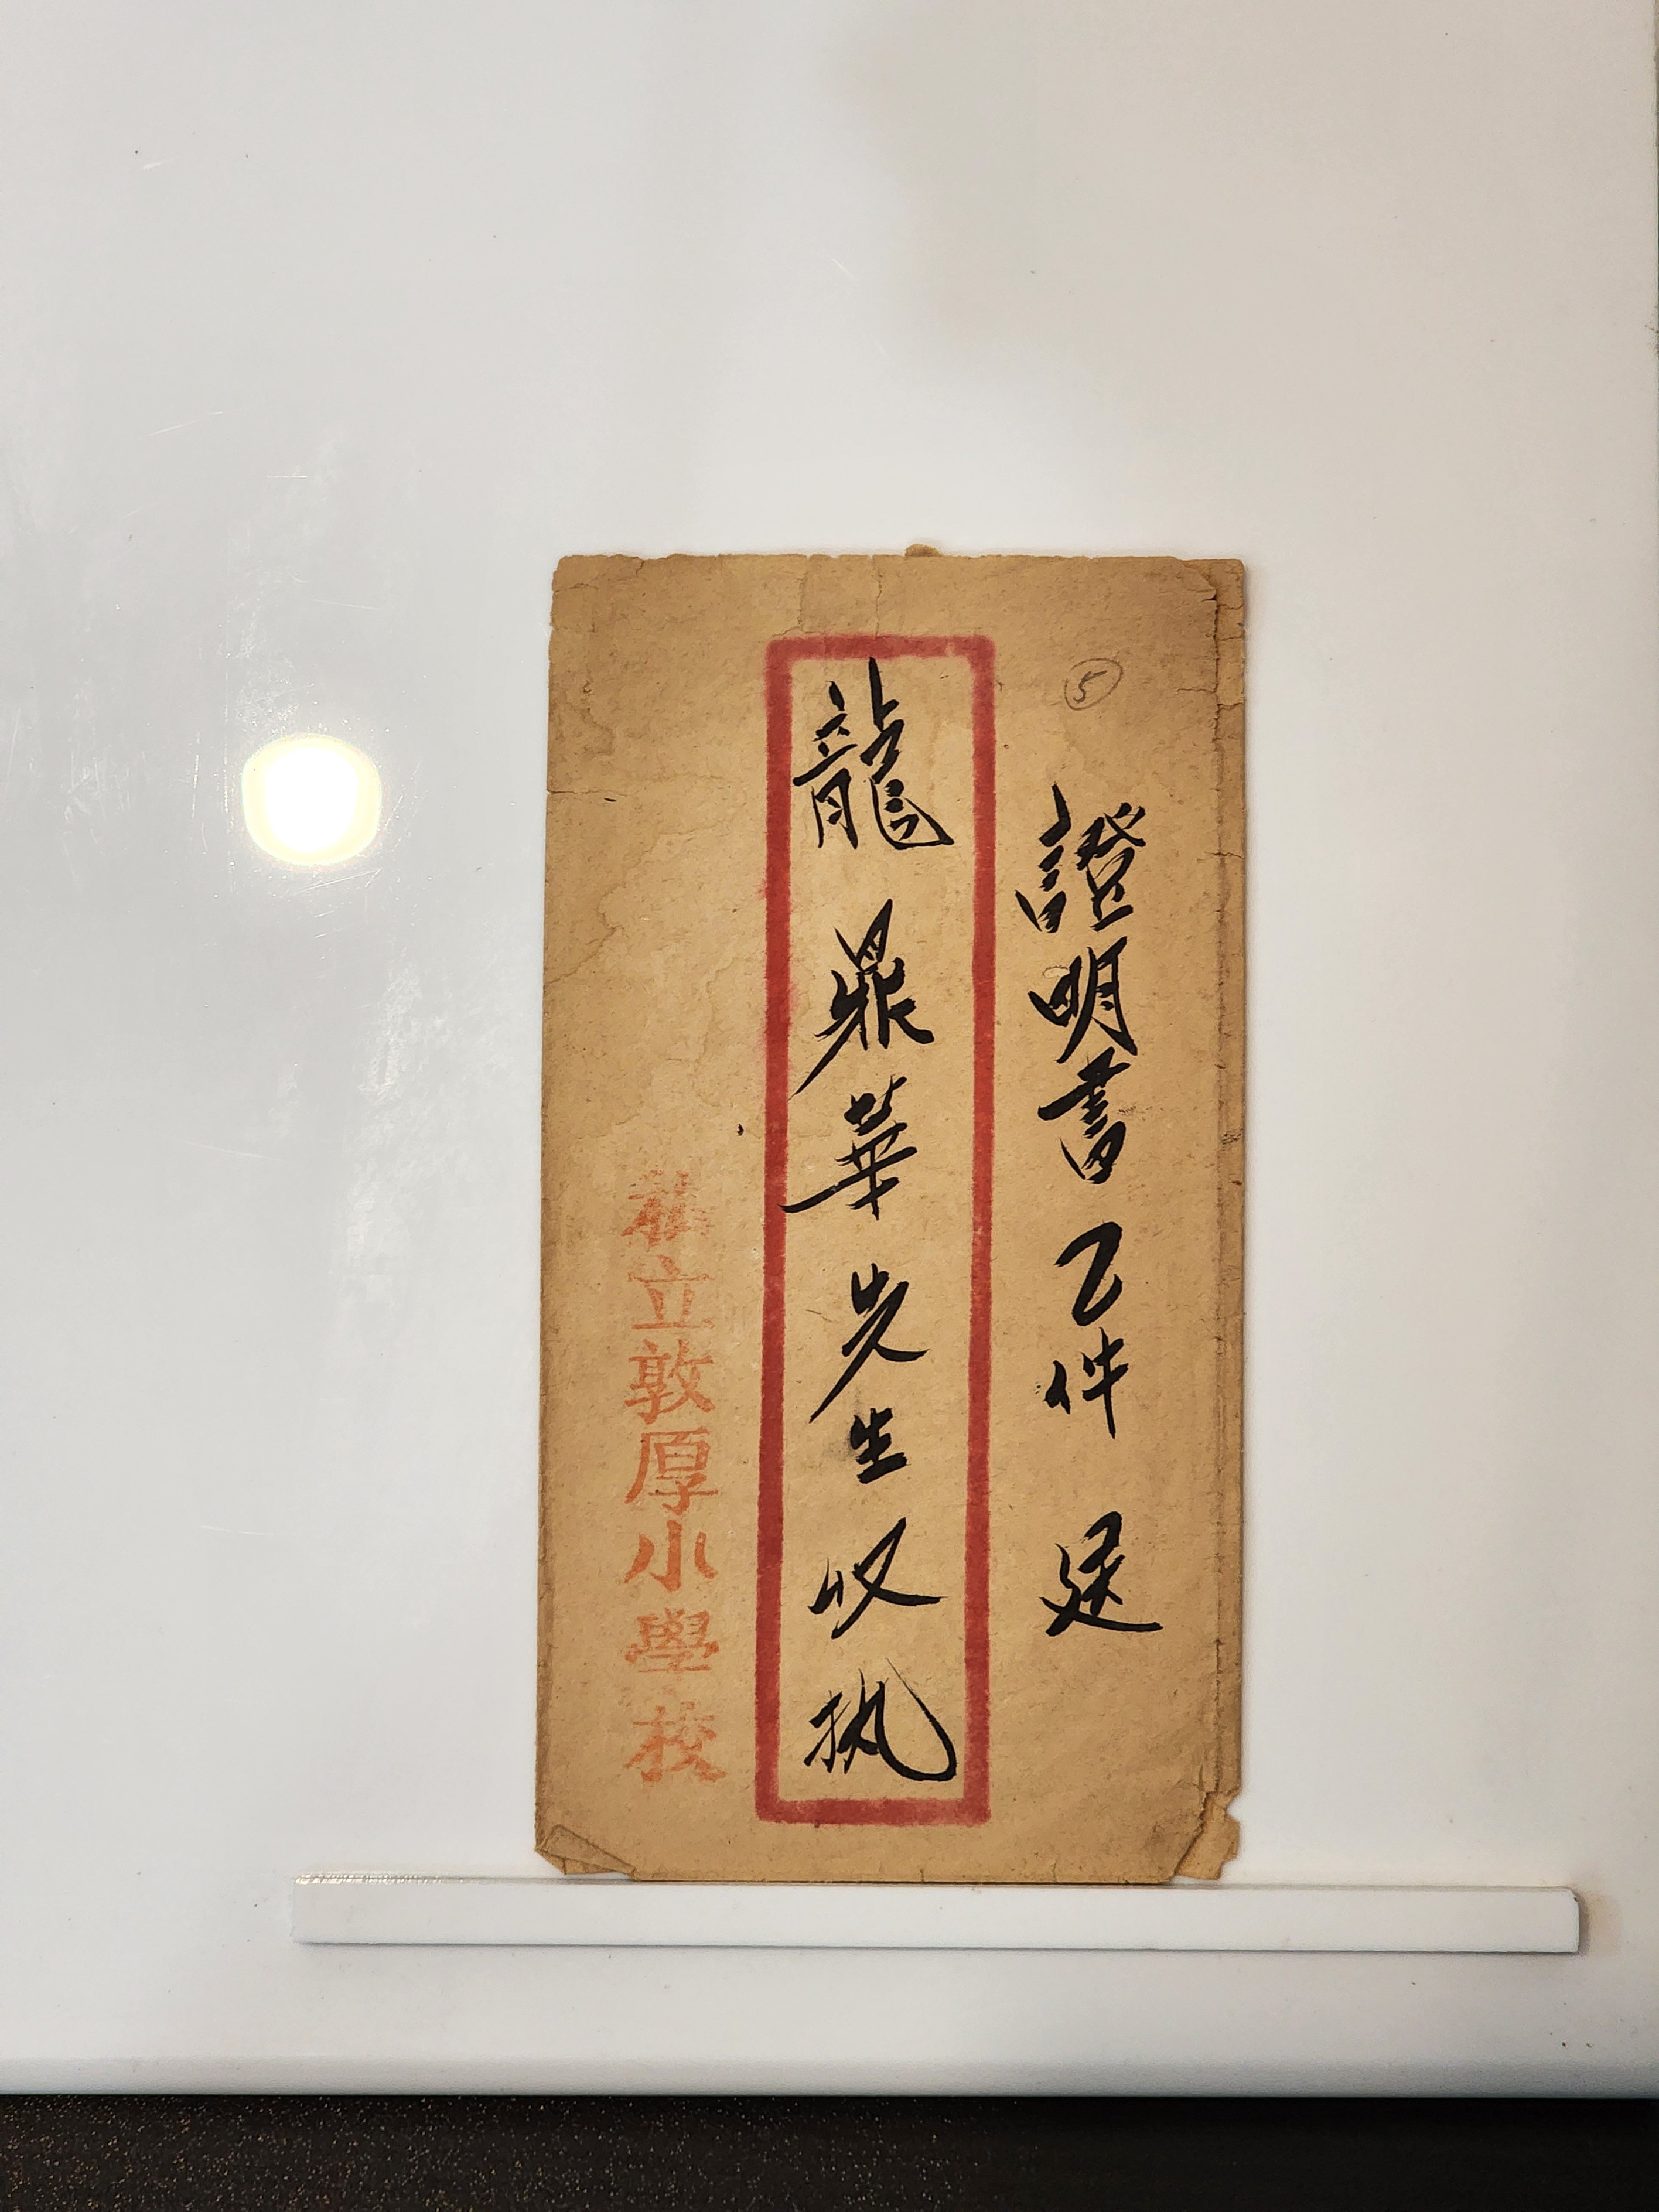 ⑤
證明書乙件 送
龍鼎華先生收執
私立敦厚小學校